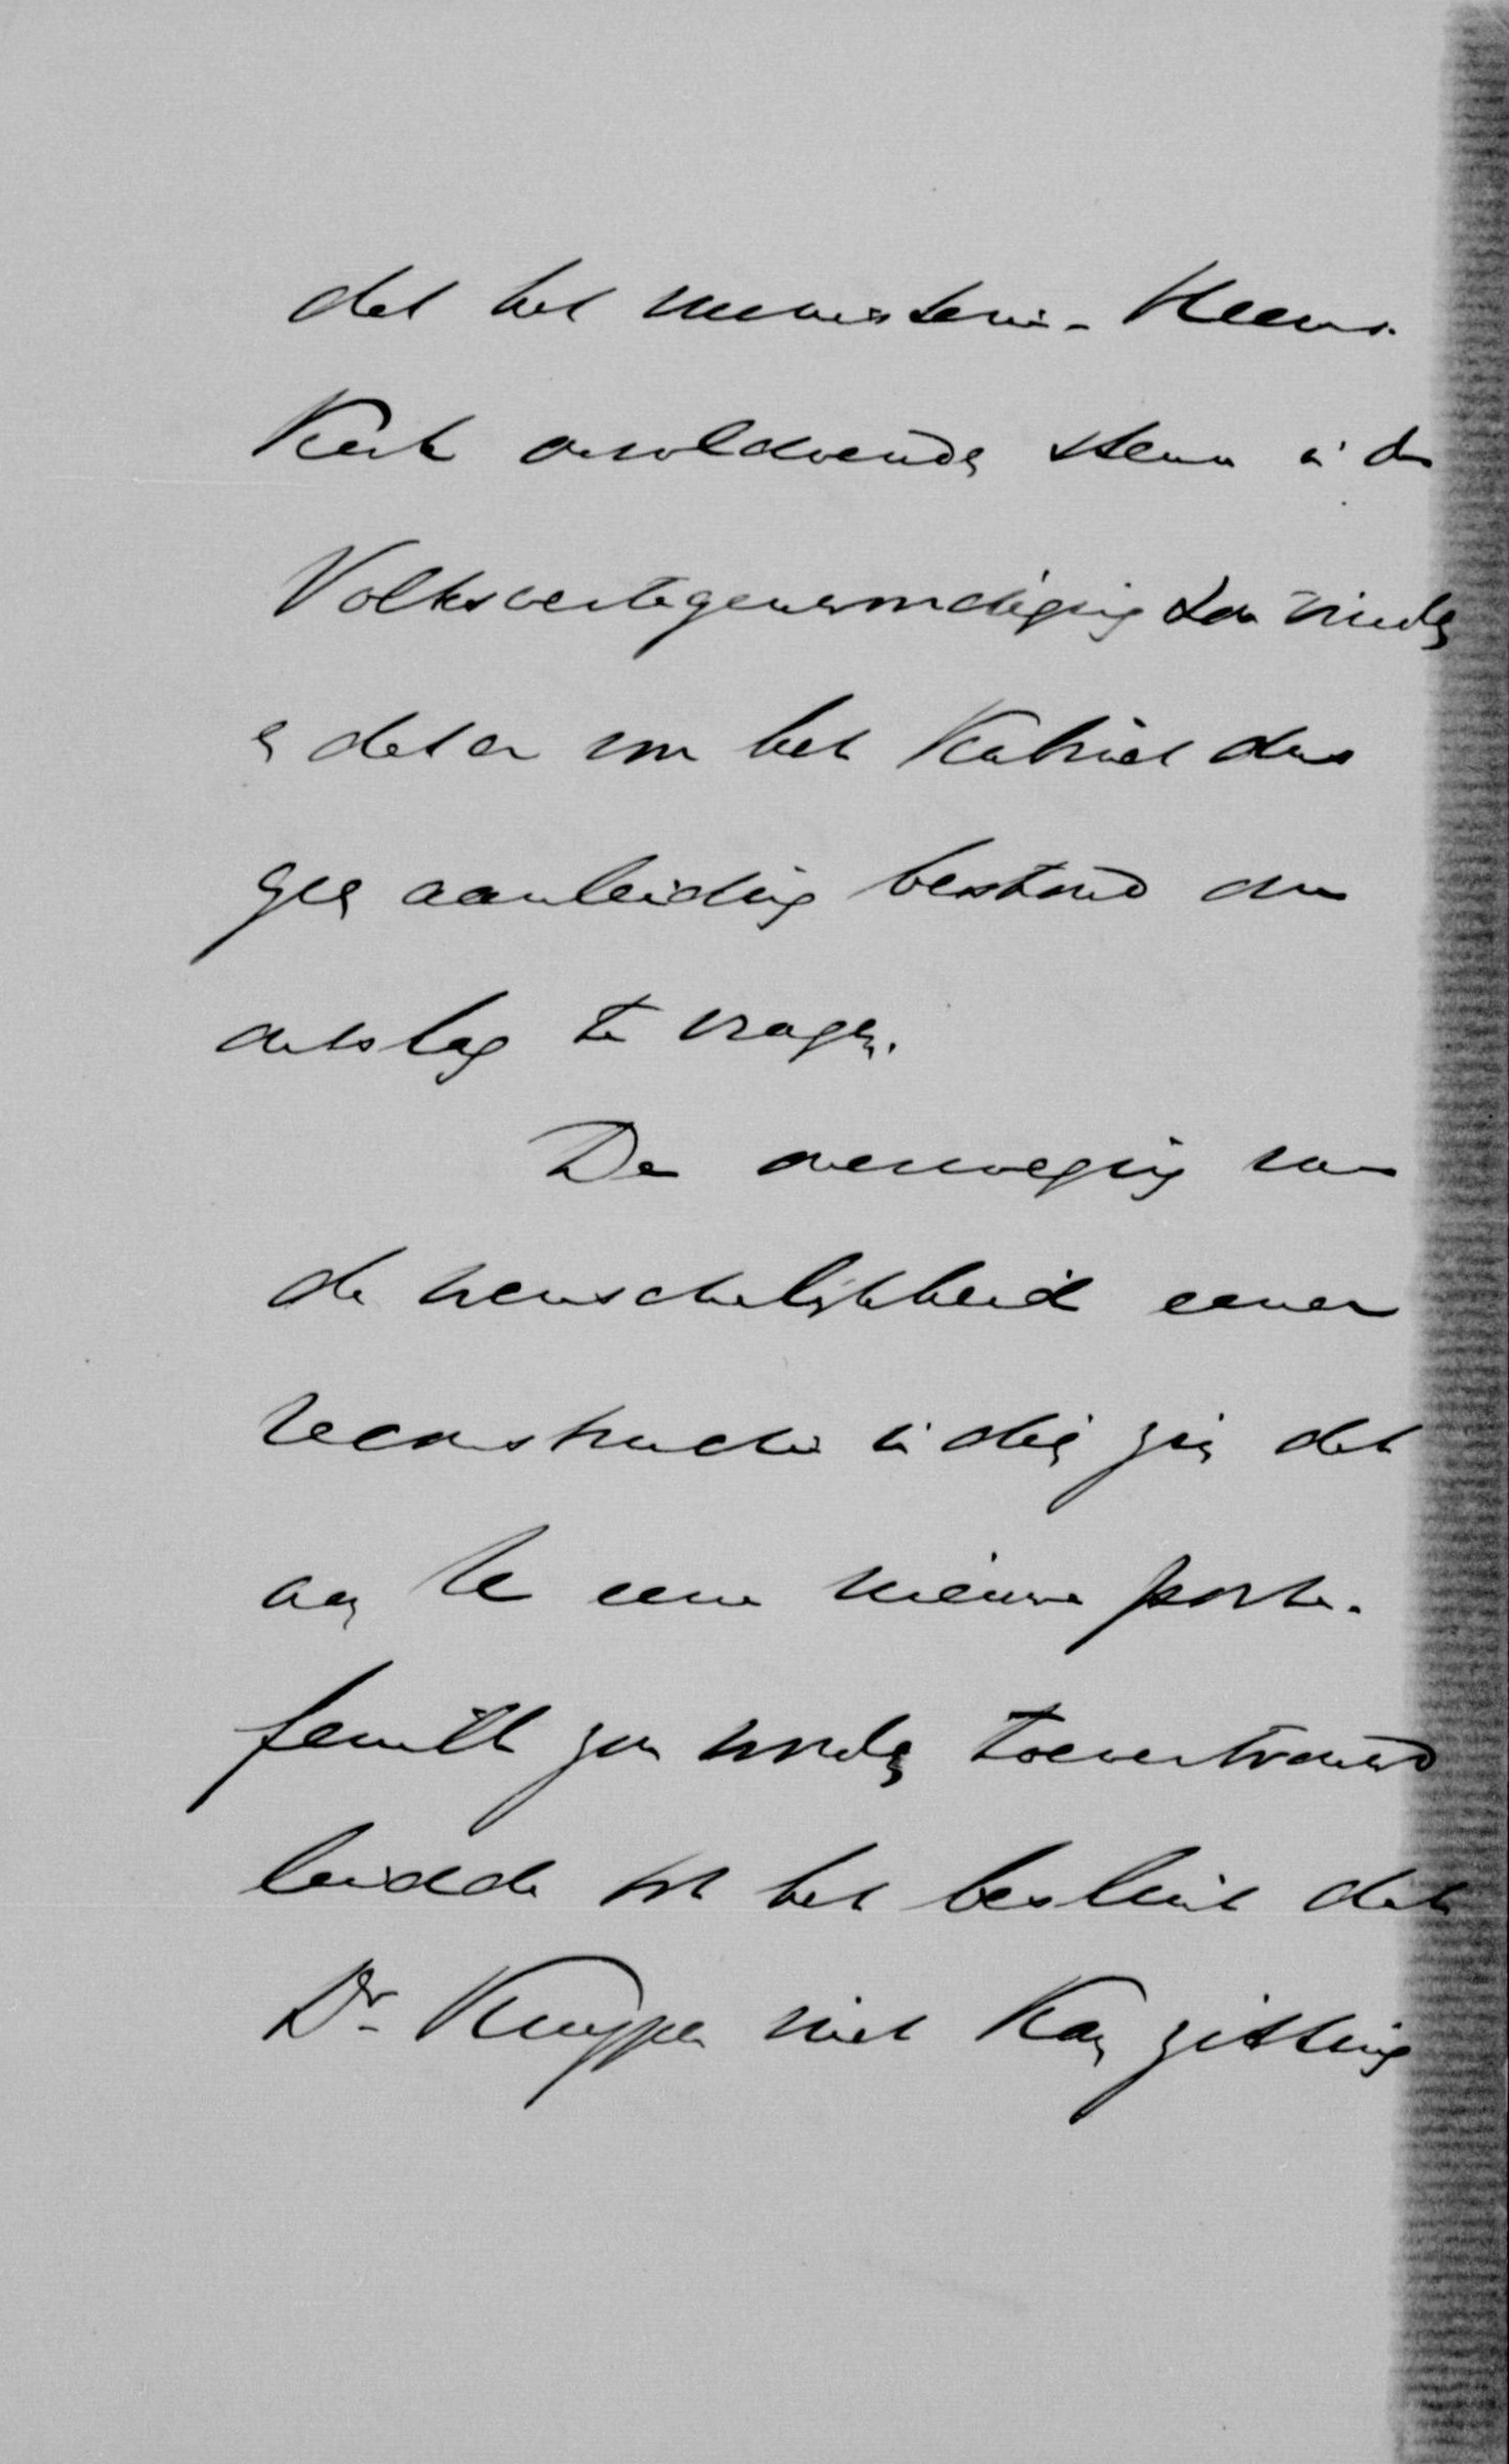 dat het ministerie-Heems-
Kerk onvoldoende steun in de
Volksvertegenwoordiging zou vinden
en dat er voor het Kabinet dus
geen aanleiding bestond om
ontslag te vragen.
De overweging van
de wenschelijkheid eener
reconstructie in dien zin dat
aan U eene nieuwe porte-
feuille zou worden toevertrouwd
leidde tot het besluit dat
Dr. Kuyper niet kan zitting